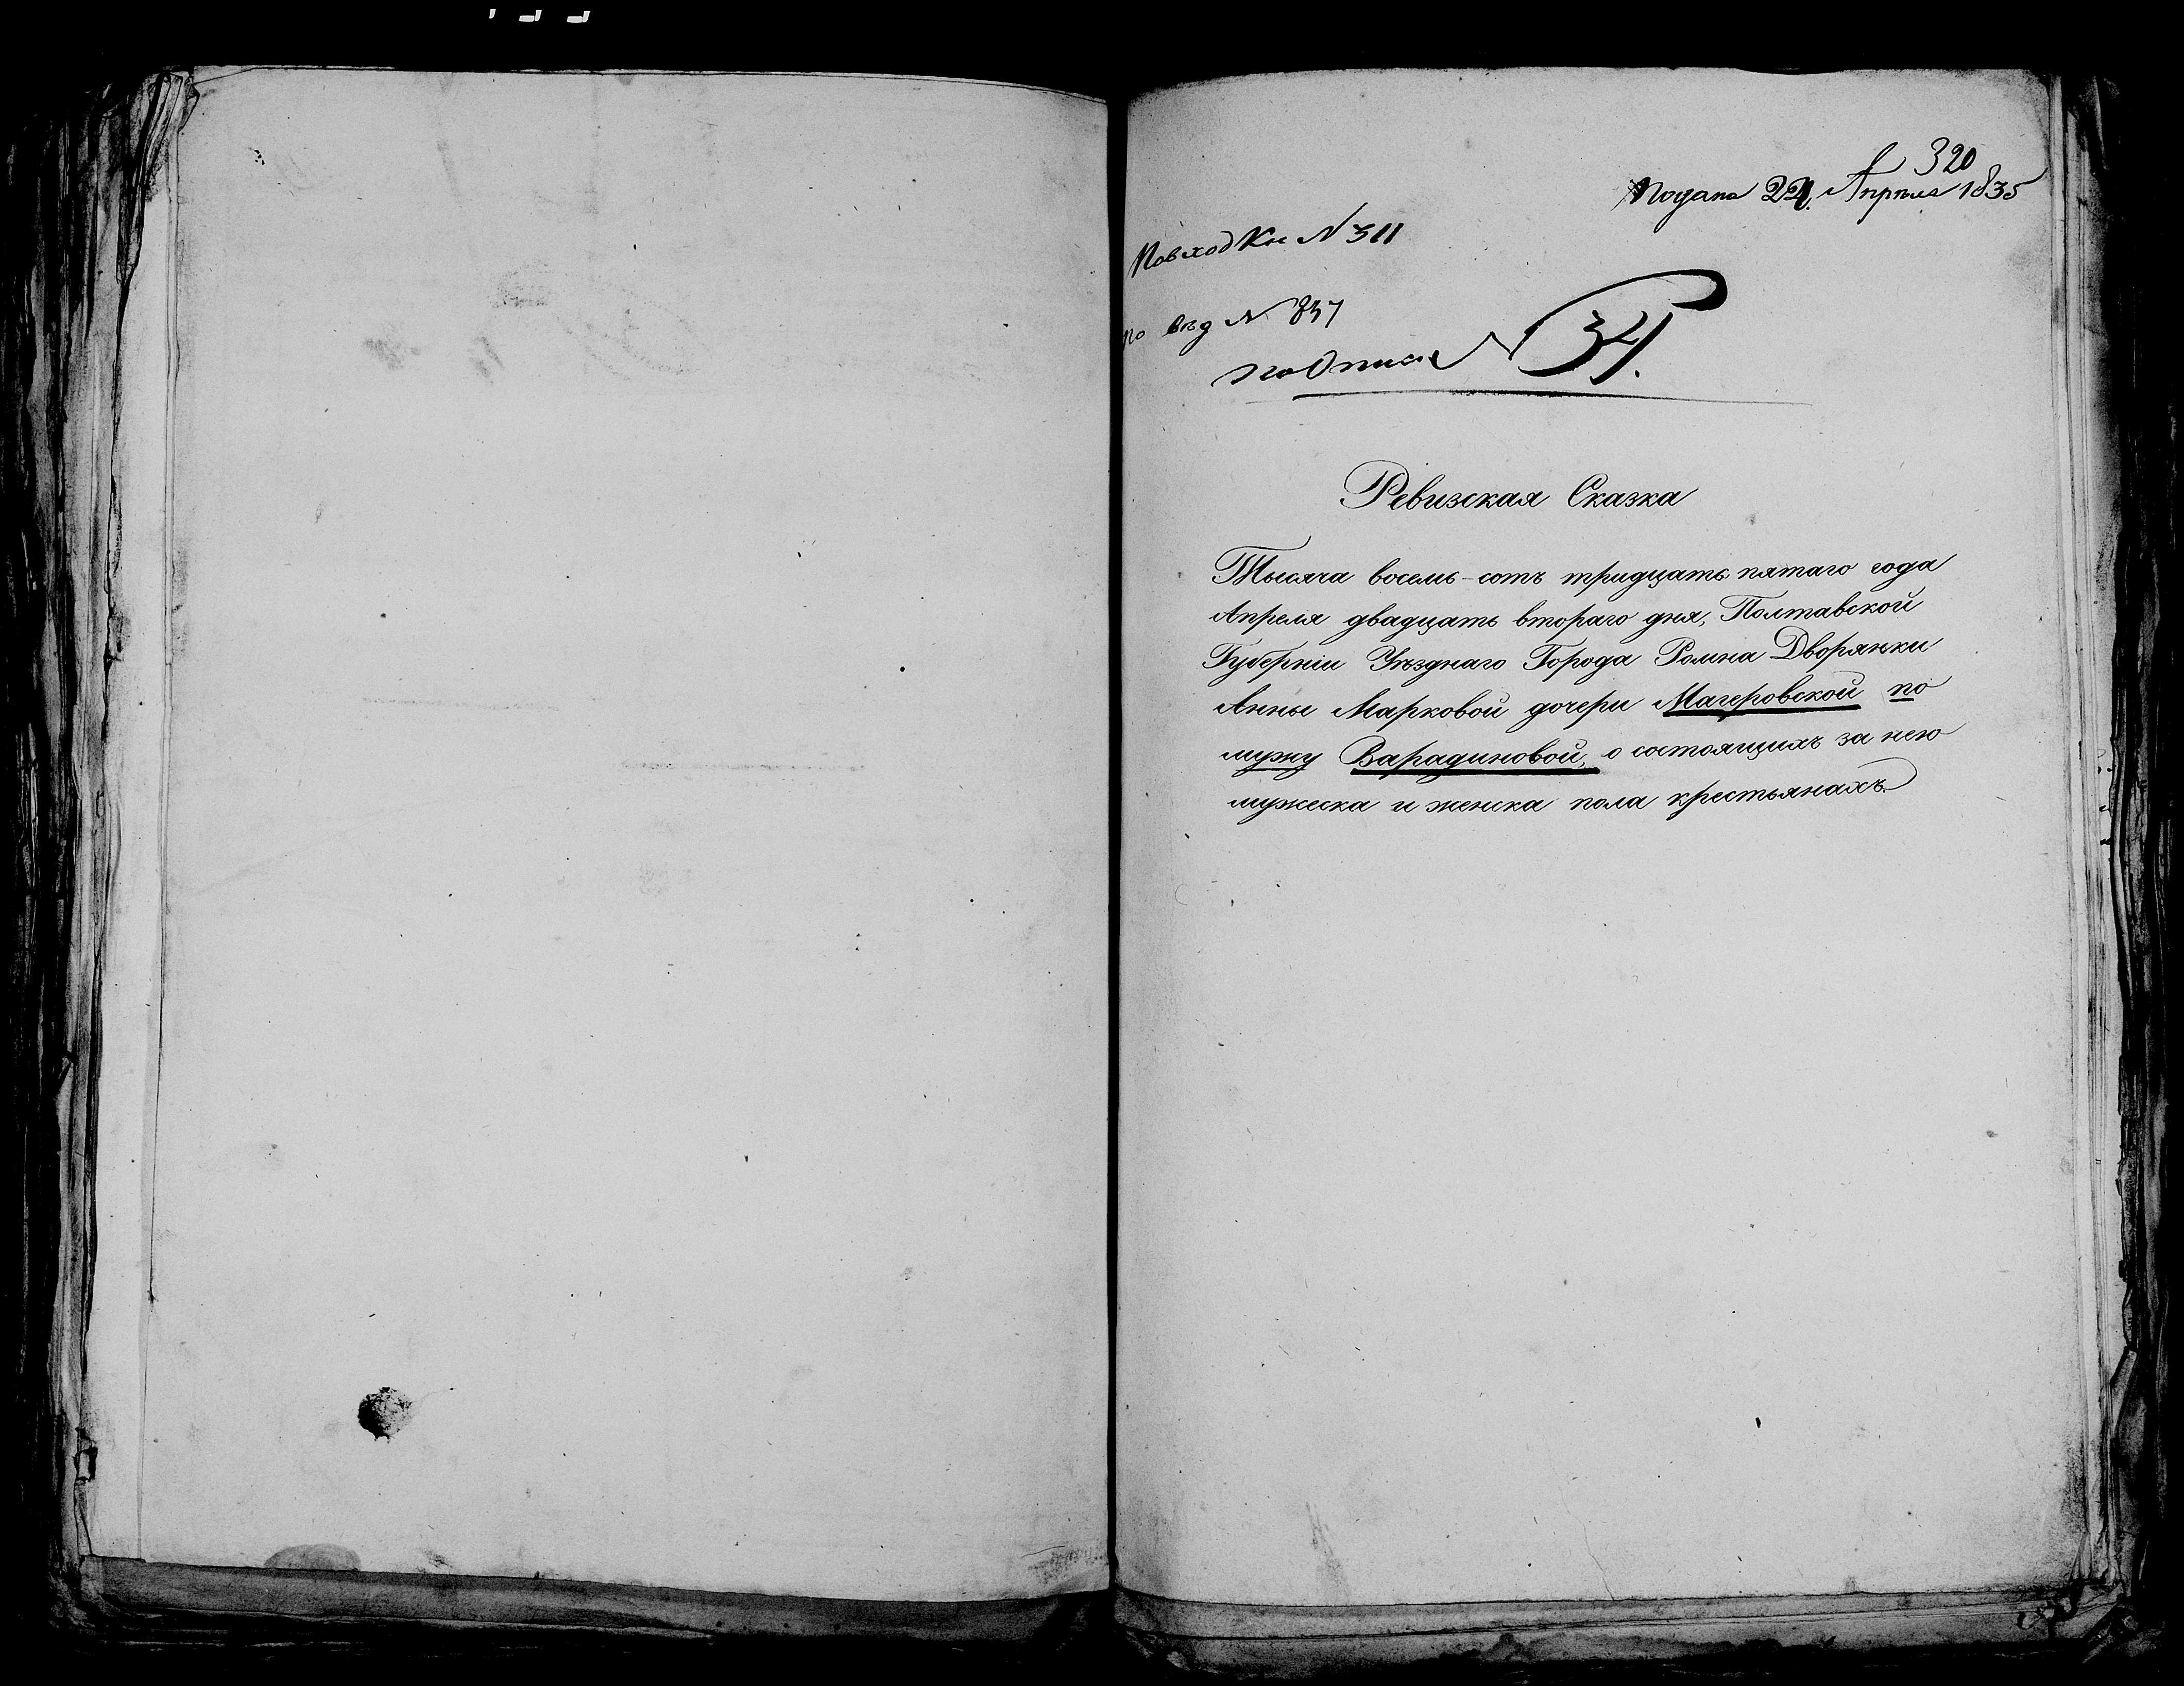 320
Подана 22. Апреля 1835
По вход Кн N 311
по вѣд N 837
по описи N 34.
Ревизская Сказка
Тысяча восемь-сотъ тридцать пятаго года
Апреля двадцать втораго дня, Полтавской
Губерніи Уѣзднаго Города Ромна Дворянки
Анны Марковой дочери Магеровской по
мужу Варадиновой, о состоящихъ за нею
мужеска и женска пола крестьянахъ.